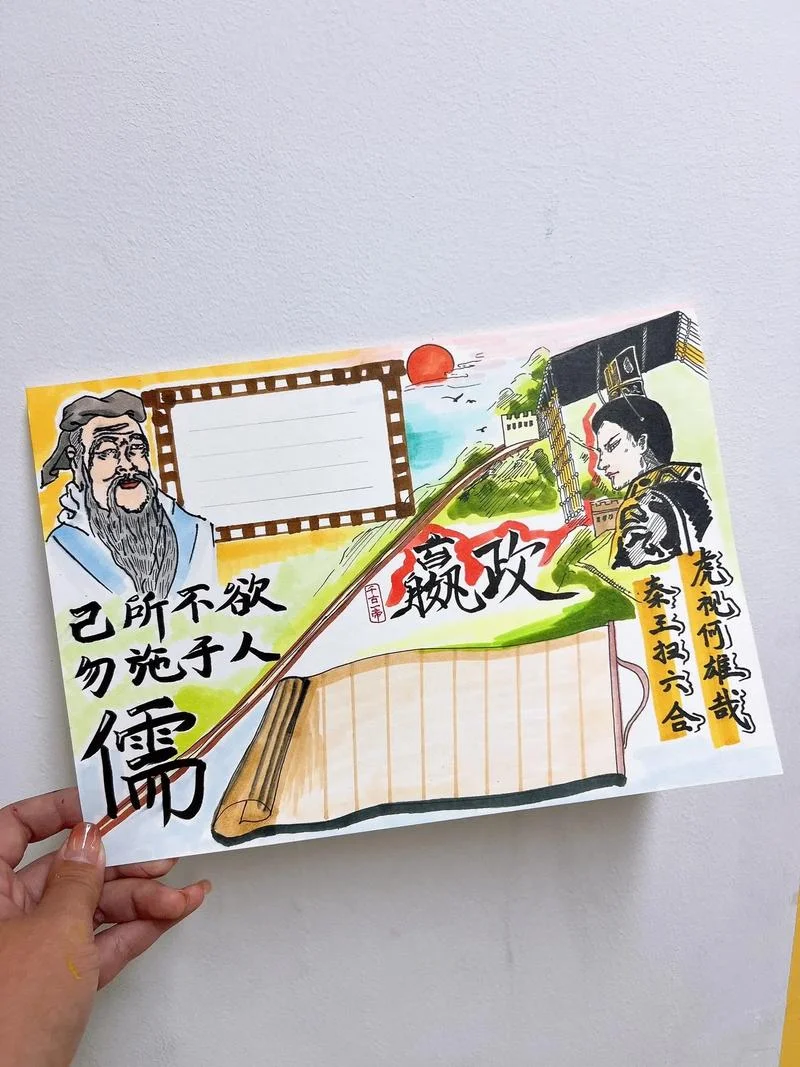 己所不欲
勿施于人
儒
嬴政
千古一帝
秦王扫六合
虎视何雄哉